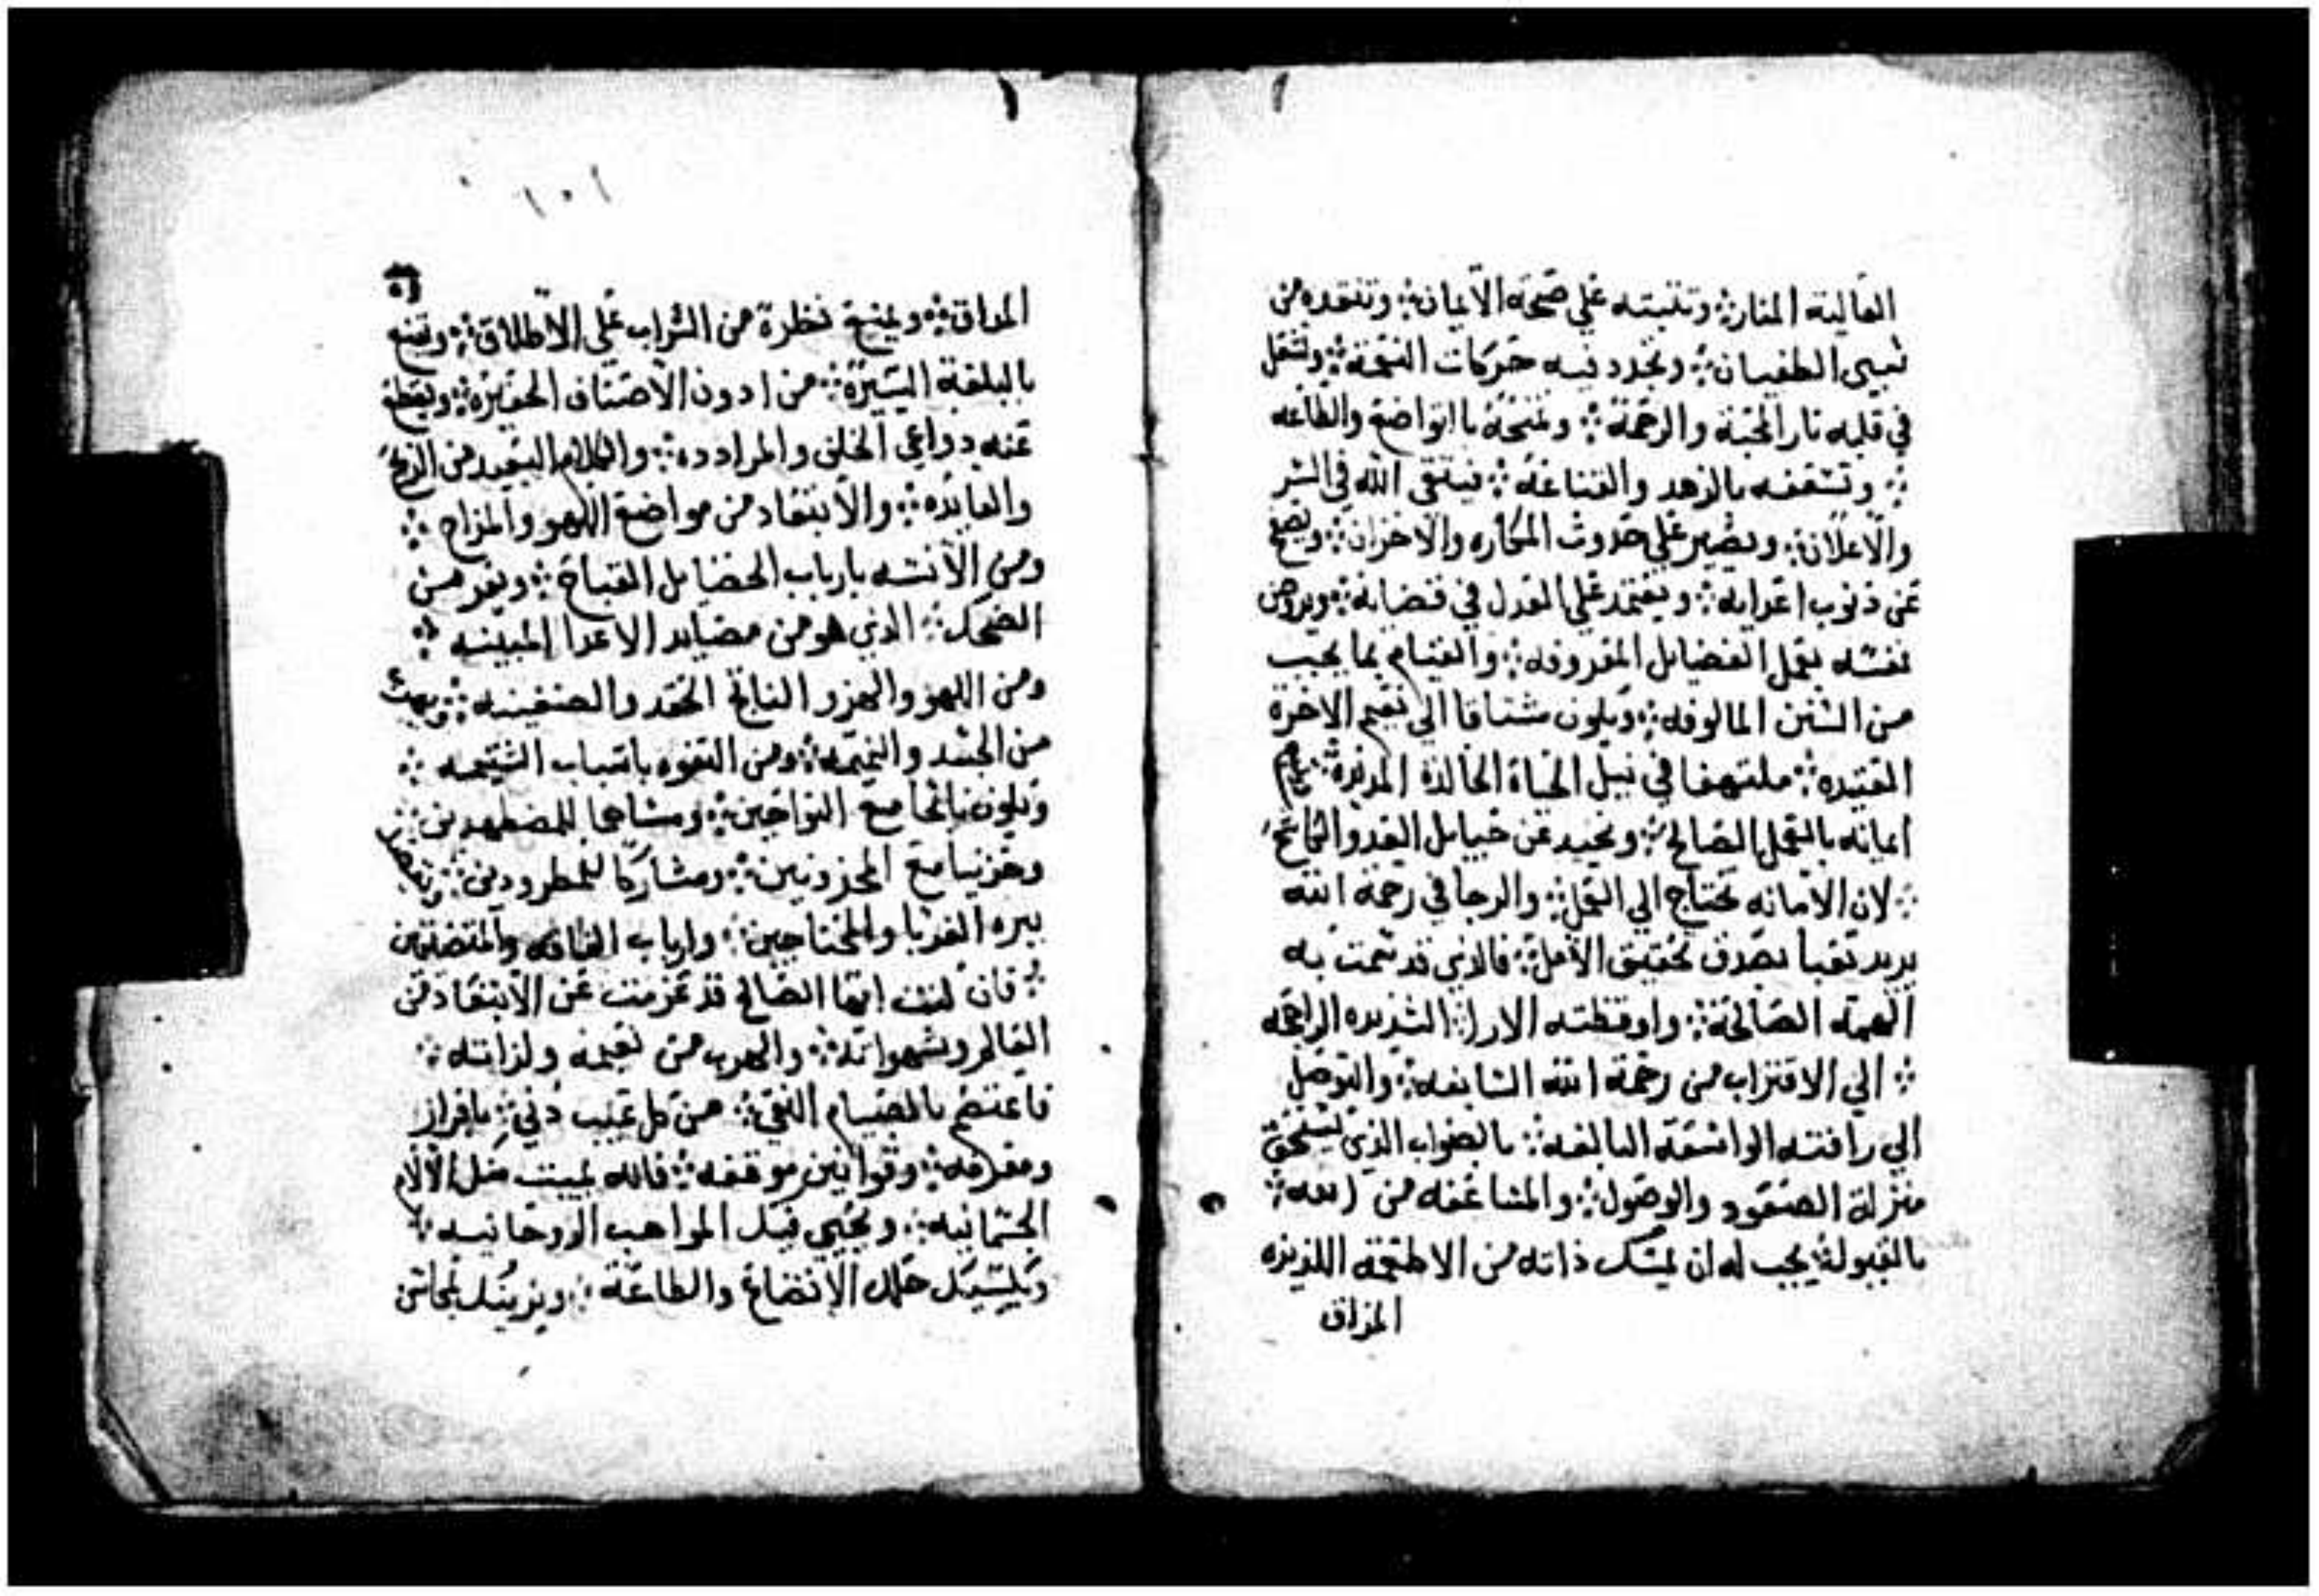 العالية المنار؞ وتثبته علي صحة الايمان؞ وتنقده من
سبي الطغيان؞ وتجدد فيه حركات النعمة؞ وتشعل
في قلبه نار المحبة والرحمة؞ وتمنحه بالتواضع والطاعه
؞ وتشغفه بالزهد والقناعة؞ فيتقي الله في السر
والاعلان؞ ويصبر علي حدوث المكاره والاحزان؞ ويصفح
عن ذنوب اعدايه؞ ويعتمد علي العدل في قضايه؞ ويروض
نفسه بعمل الفضايل المعروفه؞ والقيام بما يجب
من السنن المالوفه؞ ويكون مشتاقا الي نعيم الاخرة
العتيده؞ ملتهفا في نيل الحياة الخالدة المديدة؞
ايمانه بالعمل الصالح؞ ويحيد عن حبايل العدو
؞ لان الامانه تحتاج الي العمل؞ والرجا في رحمة الله
يريد تعبا بصدق تحقيق الامل؞ فالذي قد سمت به
الهمه الصالحة؞ واوقظته الارا؞ الشديده الراجحه
؞ الي الاقتراب من رحمة الله السابغه؞ والتوصل
الي رافته الواسعة البالغه؞ بالصواب الذي يستحق
منزلة الصعود والوصول؞ والمشاعفه من
بالقبول؞ يجب له ان يمسك ذاته من الاطعمة اللذيذه
المزاق
١٥١
المداق؞ ويمنع نظرة من الشراب علي الاطلاق؞ ويقنع
بالبلغة اليسيرة؞ من ادون الاصناف الحقيرة؞ ويقطع
عنه دواعي الخلق والمرادده؞ والكلام البعيد من الربح
والفايده؞ والابتعاد من مواضع اللهو والمزاح؞
ومن الانسه بارباب الخصايل القباح؞ ويفر من
الضحك؞ الذي هو من مصايد الاعدا المبينه؞
ومن اللهو والهزو الناتج الحقد والضغينه؞ ويهرب
من الحسد والنميمه؞ ومن التفوه باسباب الشتيمه؞
ويكون نايحا مع النواحين؞ ومسامحا للمضطهدين؞
وحزينا مع المحزونين؞ ومشاركا للمطرودين؞
ببره الغربا والمحتاجين؞ وارباب الفاقه والمتضعين
؞ فان كنت ايها الصالح قد عزمت عن الابتعاد من
العالم وشهواته؞ والهرب من نعيمه ولزاته؞
فاعتصم بالصيام النقي؞ من كل عيب دني؞ بافراز
ومعرفه؞ وقوانين موقفه؞ فانه يميت منك الالام
الجسمانيه؞ ويحيي فيك المواهب الروحانيه؞
ويكسيك حلل الاتضاع والطاعة؞ ويزينك بمحاسن